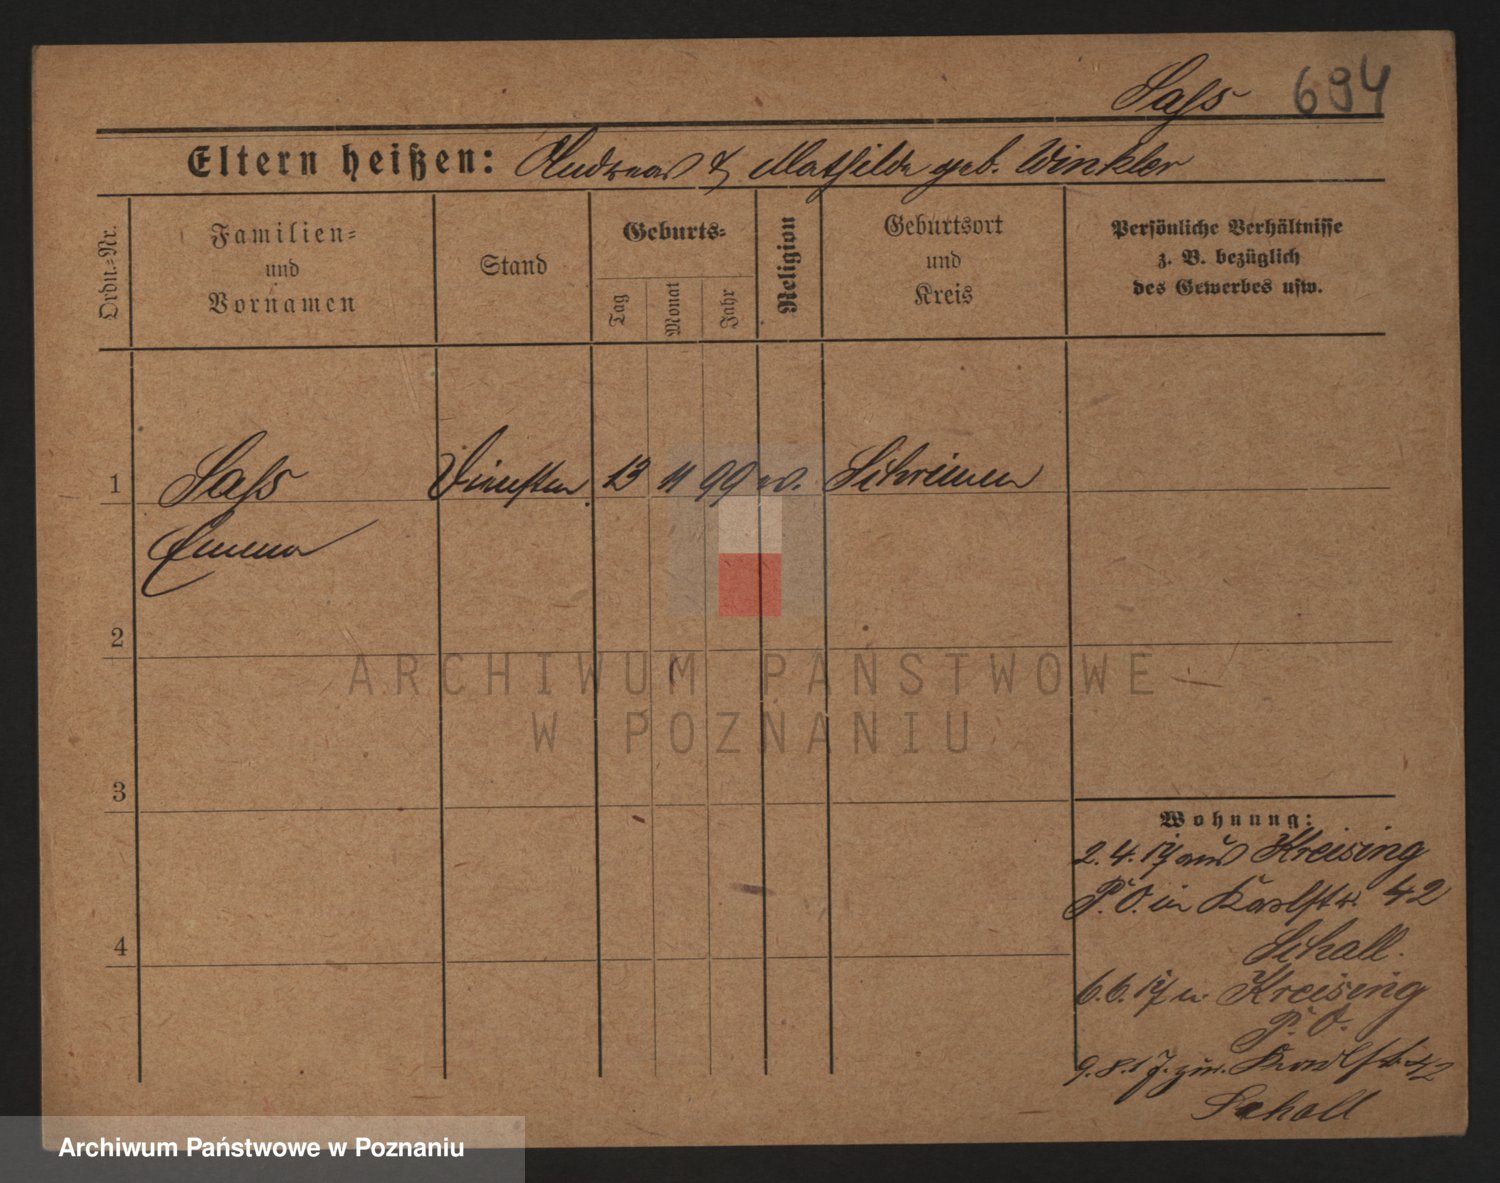 Sass 694
Eltern heißen: Andreas & Mathilde geb. Winkler
Ordn.=Nr.
Familien=
und
Vornamen
Stand
Geburts=
Tag
Monat
Jahr
Religion
Geburtsort
und
Kreis
Persönliche Verhältnisse
z. B. bezüglich
des Gewerbes usw.
1 Sass 13 11 99
Emma
2
3
4
Wohnung:
2.4.17 aus Kreising
P. O. in Karlstr. 42
Schall.
6.6.17 n. Kreising
P. O.
9.8.17. zur. Karlstr. 42
Scholl
ARCHIWUM PAŃSTWOWE
W POZNANIU
Archiwum Państwowe w Poznaniu